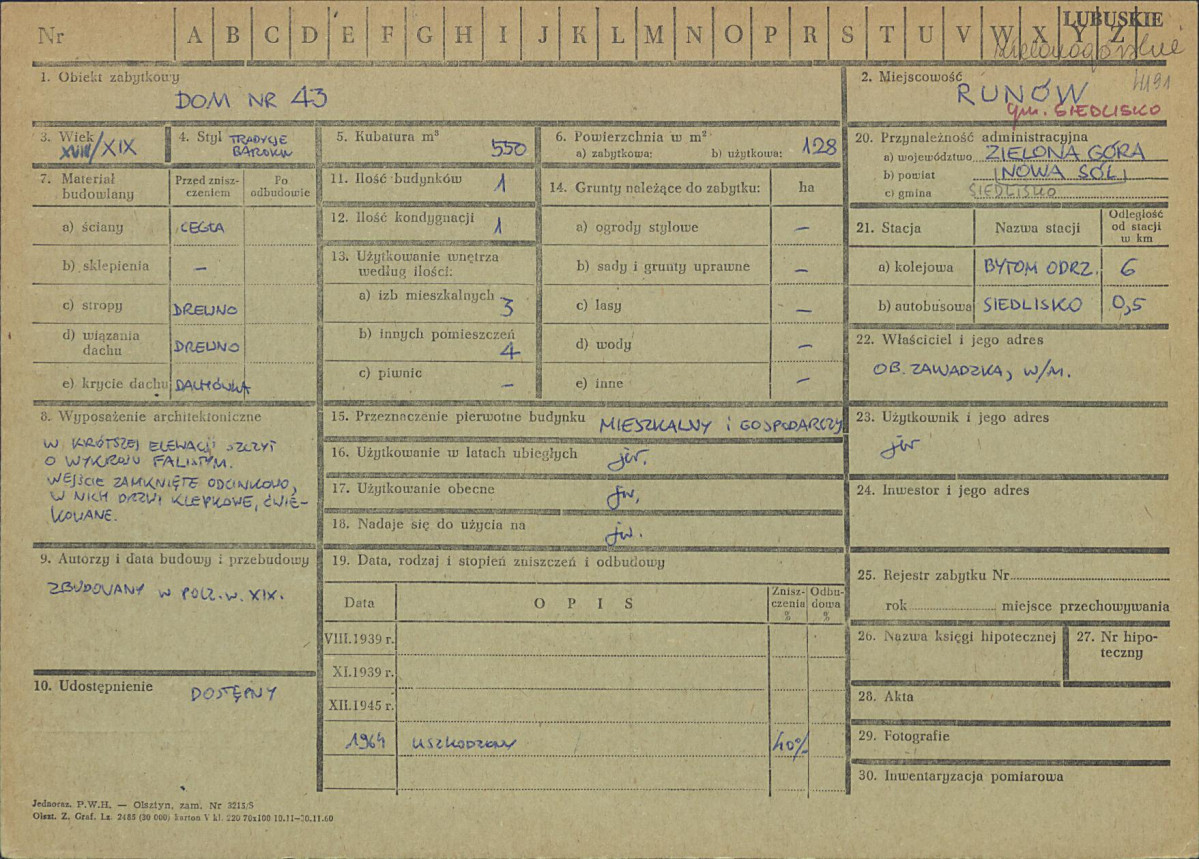 Nr A B C D E F G H I J K L M N O P R S T U V W X Y Z LUBUSKIE
zielonogórskie
1. Obiekt zabytkowy
DOM NR 43
2. Miejscowość
RUNÓW
gm. SIEDLISKO
3. Wiek
XVIII/XIX
4. Styl TRADYCJE
BAROKU
5. Kubatura m³
550
6. Powierzchnia w m²
a) zabytkowa: b) użytkowa: 128
7. Materiał
budowlany
Przed znisz-
czeniem
Po
odbudowie
a) ściany CEGŁA
b) sklepienia –
c) stropy DREWNO
d) wiązania
dachu DREWNO
e) krycie dachu DACHÓWKA
8. Wyposażenie architektoniczne
W KRÓTSZEJ ELEWACJI SZCZYT
O WYKROJU FALISTYM.
WEJŚCIE ZAMKNIĘTE ODCINKOWO,
W NICH DRZWI KLEPKOWE, ĆWIE-
KOWANE.
9. Autorzy i data budowy i przebudowy
ZBUDOWANY W POCZ. W. XIX.
10. Udostępnienie
DOSTĘPNY
11. Ilość budynków 1
12. Ilość kondygnacji 1
13. Użytkowanie wnętrza
według ilości:
a) izb mieszkalnych 3
b) innych pomieszczeń
4
c) piwnic –
14. Grunty należące do zabytku: ha
a) ogrody stylowe –
b) sady i grunty uprawne –
c) lasy –
d) wody –
e) inne –
15. Przeznaczenie pierwotne budynku MIESZKALNY i GOSPODARCZY
16. Użytkowanie w latach ubiegłych jw.
17. Użytkowanie obecne jw.
18. Nadaje się do użycia na jw.
19. Data, rodzaj i stopień zniszczeń i odbudowy
Data O P I S
Znisz-
czenia
%
Odbu-
dowa
%
VIII.1939 r.
XI.1939 r.
XII.1945 r.
1964 USZKODZONY 40%
20. Przynależność administracyjna
a) województwo ZIELONA GÓRA
b) powiat NOWA SÓL
c) gmina SIEDLISKO
21. Stacja Nazwa stacji
Odległość
od stacji
w km
a) kolejowa BYTOM ODRZ. 6
b) autobusowa SIEDLISKO 0,5
22. Właściciel i jego adres
OB. ZAWADZKA, W/M.
23. Użytkownik i jego adres
jw
24. Inwestor i jego adres
25. Rejestr zabytku Nr
rok miejsce przechowywania
26. Nazwa księgi hipotecznej
27. Nr hipo-
teczny
28. Akta
29. Fotografie
30. Inwentaryzacja pomiarowa
Jednoraz. P.W.H. — Olsztyn, zam. Nr 3215/S
Olszt. Z. Graf. Lz. 2488 (30 000) karton V kl. 220 70x100 10.11—30.11.60